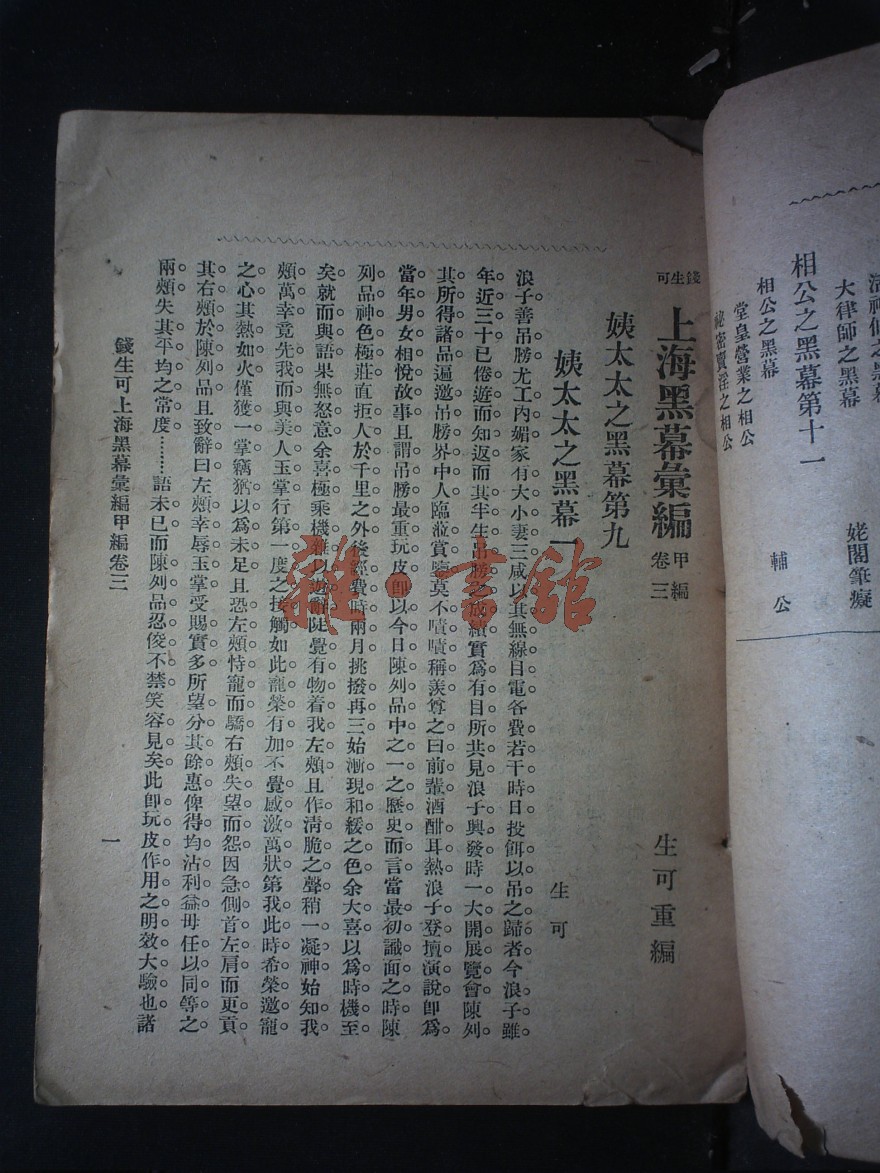 清神仙之黑幕
大律師之黑幕
姥閣筆癡
相公之黑幕第十一
相公之黑幕
輔公
堂皇營業之相公
祕密賣淫之相公
錢生可
上海黑幕彙編
甲編
卷三
生可重編
姨太太之黑幕第九
姨太太之黑幕一
生可
浪子善吊勝尤工內媚家有大小妻三咸以其無線目電各費若干時日投餌以吊之歸者今浪子雖
年近三十已倦遊而知返而其半生吊勝之成績實爲有目所共見浪子興發時一大開展覽會陳列
其所得諸品遍邀吊勝界中人臨涖賞鑒莫不嘖嘖稱羨尊之曰前輩酒酣耳熱浪子登壇演說卽爲
當年男女相悅故事且謂吊勝最重玩皮卽以今日陳列品中之一之歷史而言當最初識面之時陳
列品神色極莊直拒人於千里之外後經費時兩月挑撥再三始漸現和緩之色余大喜以爲時機至
矣就而與語果無怒意余喜極乘機雜以遊辭陡覺有物着我左頰且作淸脆之聲稍一凝神始知我
頰萬幸竟先我而與美人玉掌行第一度之接觸如此寵榮有加不覺感激萬狀第我此時希榮邀寵
之心其熱如火僅獲一掌竊猶以爲未足且恐左頰恃寵而驕右頰失望而怨因急側首左肩而更貢
其右頰於陳列品且致辭曰左頰幸辱玉掌受賜實多所望分其餘惠俾得均沾利益毋任以同等之
兩頰失其平均之常度………語未已而陳列品忍俊不禁笑容見矣此卽玩皮作用之明效大驗也諸
錢生可上海黑幕彙編甲編卷三
一
雜·書館